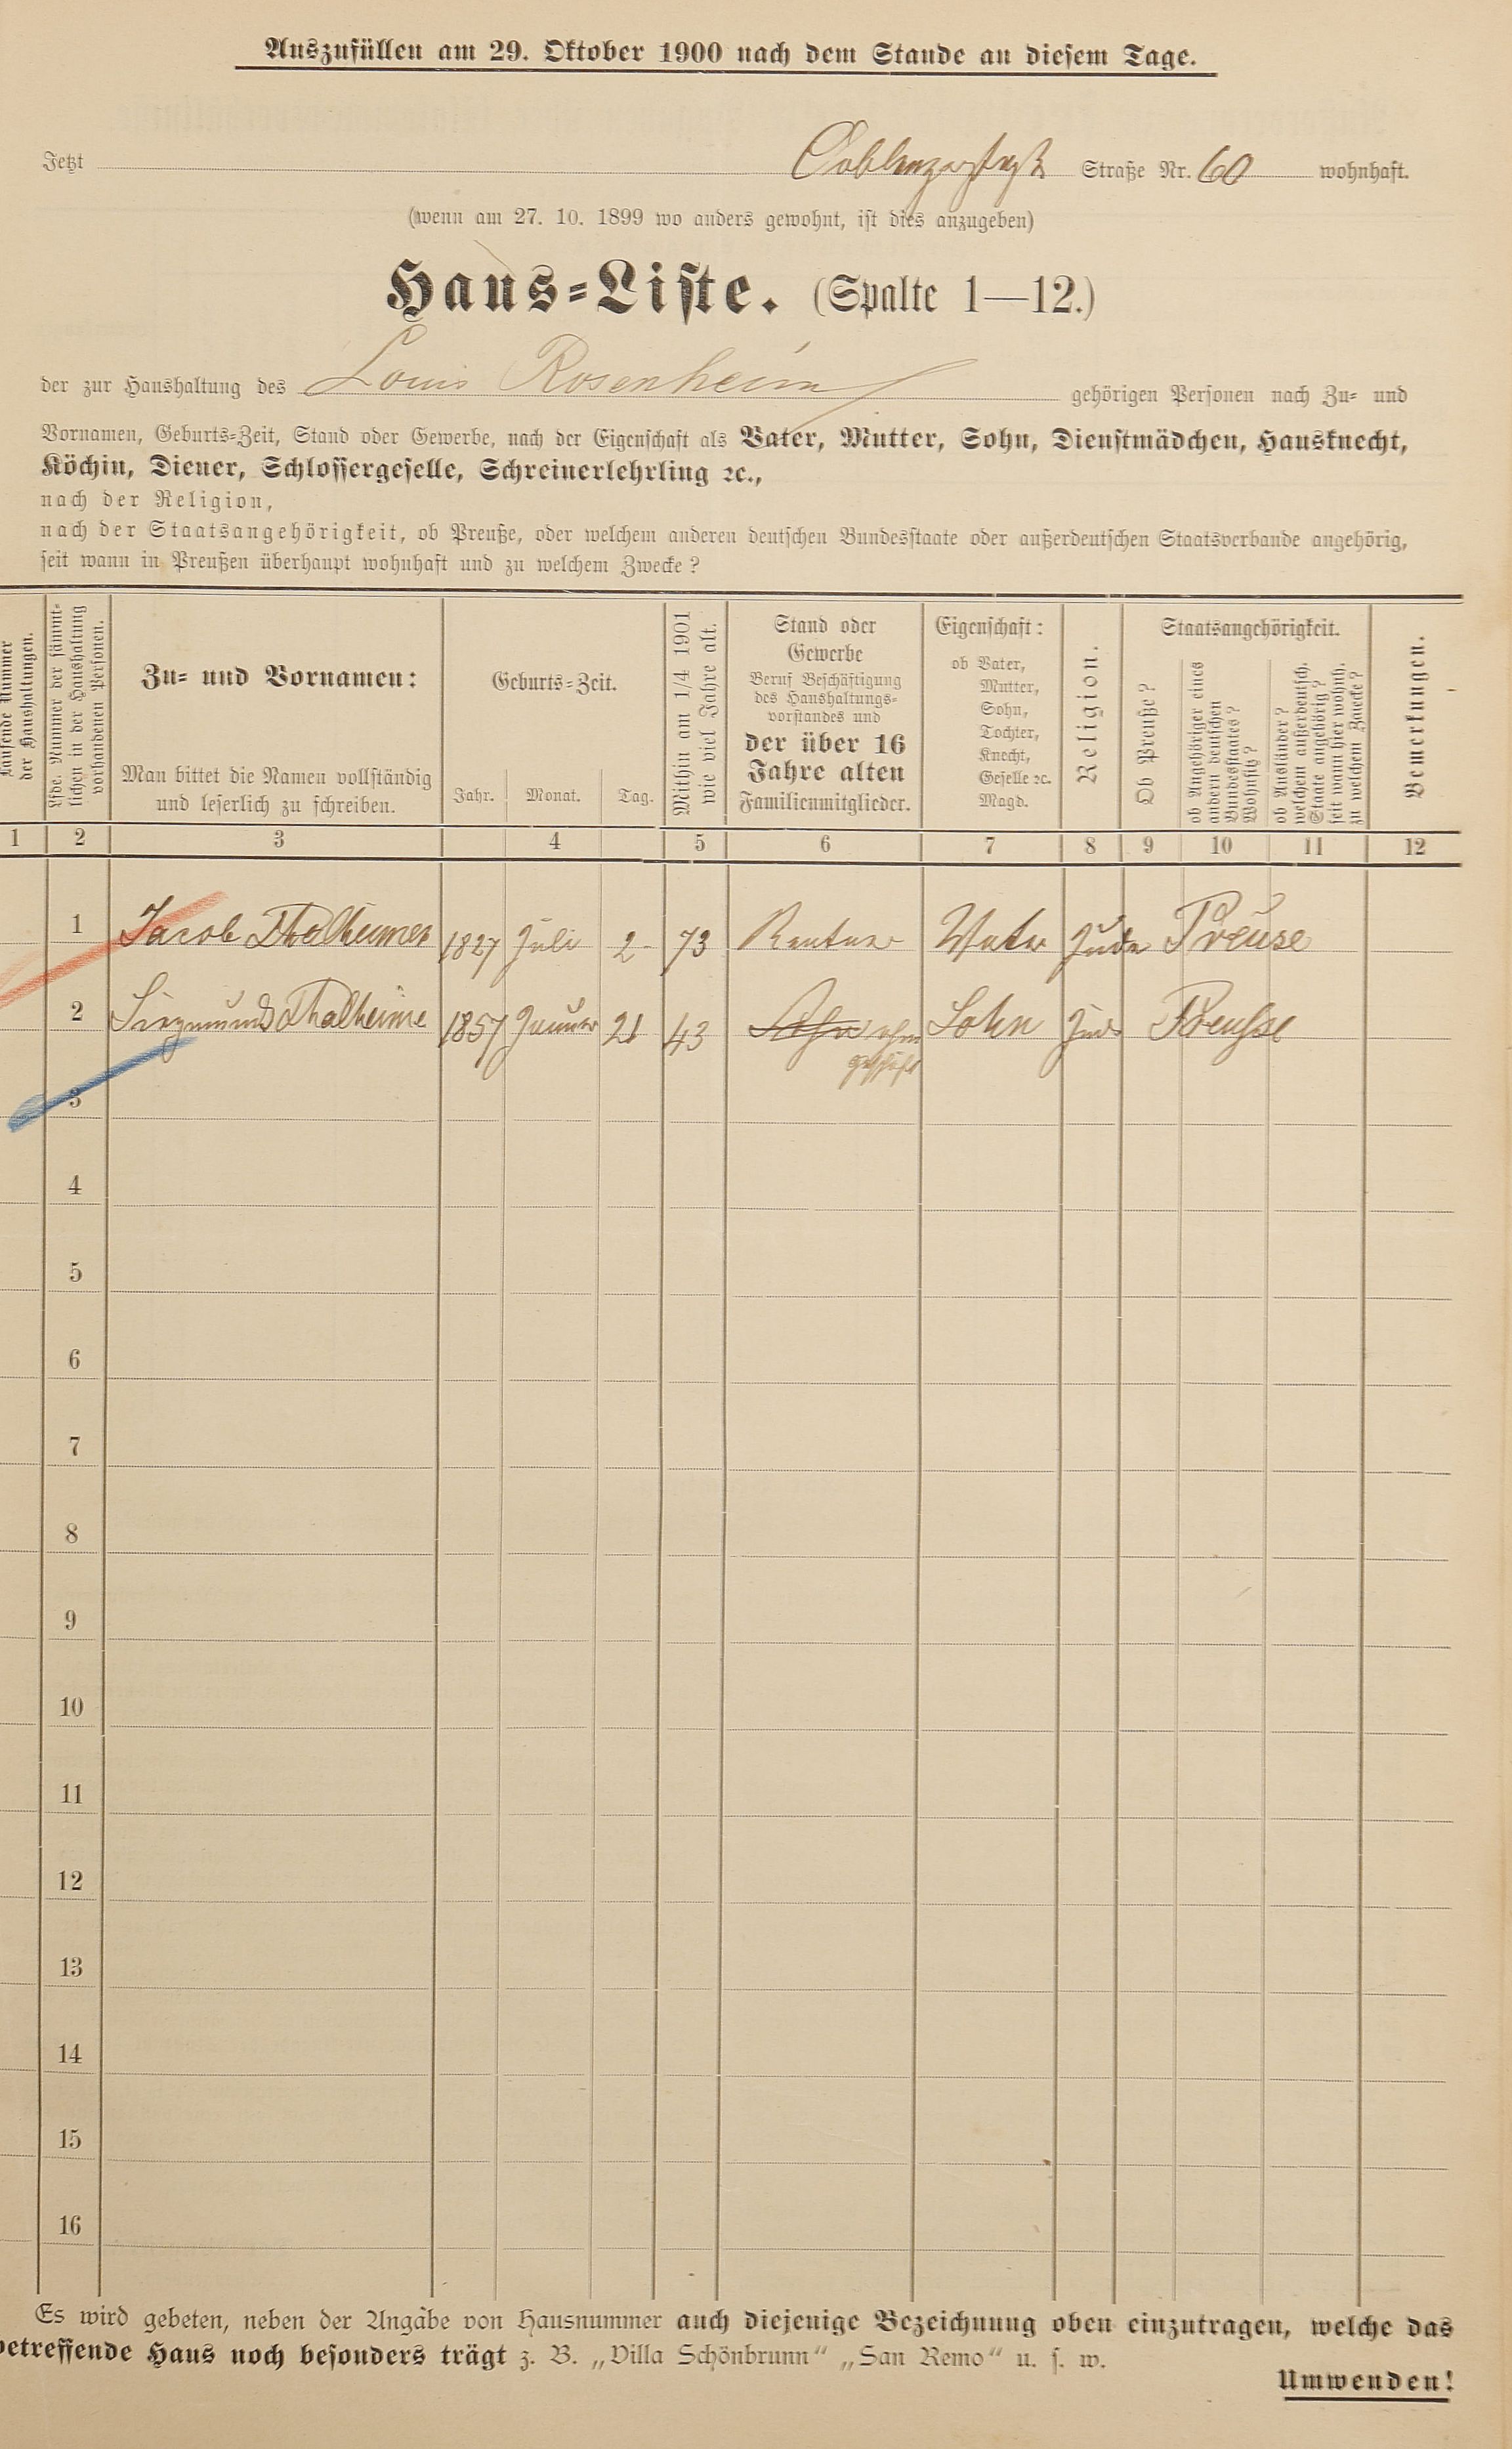 Auszufüllen am 29. Oktober 1900 nach dem Stande an diesem Tage.
Jetzt Coblenzerstraße Straße Nr. 60 wohnhaft.
(wenn am 27. 10. 1899 wo anders gewohnt, ist dies anzugeben)
Haus-Liste. (Spalte 1—12.)
der zur Haushaltung des Louis Rosenheim gehörigen Personen nach Zu- und
Vornamen, Geburts-Zeit, Stand oder Gewerbe, nach der Eigenschaft als Vater, Mutter, Sohn, Dienstmädchen, Hausknecht,
Köchin, Diener, Schlossergeselle, Schreinerlehrling ꝛc.,
nach der Religion,
nach der Staatsangehörigkeit, ob Preuße, oder welchem anderen deutschen Bundesstaate oder außerdeutschen Staatsverbande angehörig,
seit wann in Preußen überhaupt wohnhaft und zu welchem Zwecke?
Laufende Nummer
der Haushaltungen.
Lfde. Nummer der sämmt-
lichen in der Haushaltung
vorhandenen Personen.
Zu- und Vornamen:
Man bittet die Namen vollständig
und leserlich zu schreiben.
Geburts-Zeit.
Jahr. Monat. Tag.
Mithin am 1/4 1901
wie viel Jahre alt.
Stand oder
Gewerbe
Beruf Beschäftigung
des Haushaltungs-
vorstandes und
der über 16
Jahre alten
Familienmitglieder.
Eigenschaft:
ob Vater,
Mutter,
Sohn,
Tochter,
Knecht,
Geselle ꝛc.
Magd.
Religion.
Staatsangehörigkeit.
Ob Preuße?
ob Angehöriger eines
andern deutschen
Bundesstaates?
Wohnsitz?
ob Ausländer?
welchem außerdeutsch.
Staate angehörig?
seit wann hier wohnh.
zu welchem Zwecke?
Bemerkungen.
1 2 3 4 5 6 7 8 9 10 11 12
1 Jacob Thalheimer 1827 Juli 2 73 Rentner Vater Jude Preuse
2 Siegmund Thalheime 1857 Januar 21 43 Sohn ohne Sohn Jud Preusse
Geschäft
3
4
5
6
7
8
9
10
11
12
13
14
15
16
Es wird gebeten, neben der Angabe von Hausnummer auch diejenige Bezeichnung oben einzutragen, welche das
betreffende Haus noch besonders trägt z. B. „Villa Schönbrunn“ „San Remo“ u. s. w.
Umwenden!